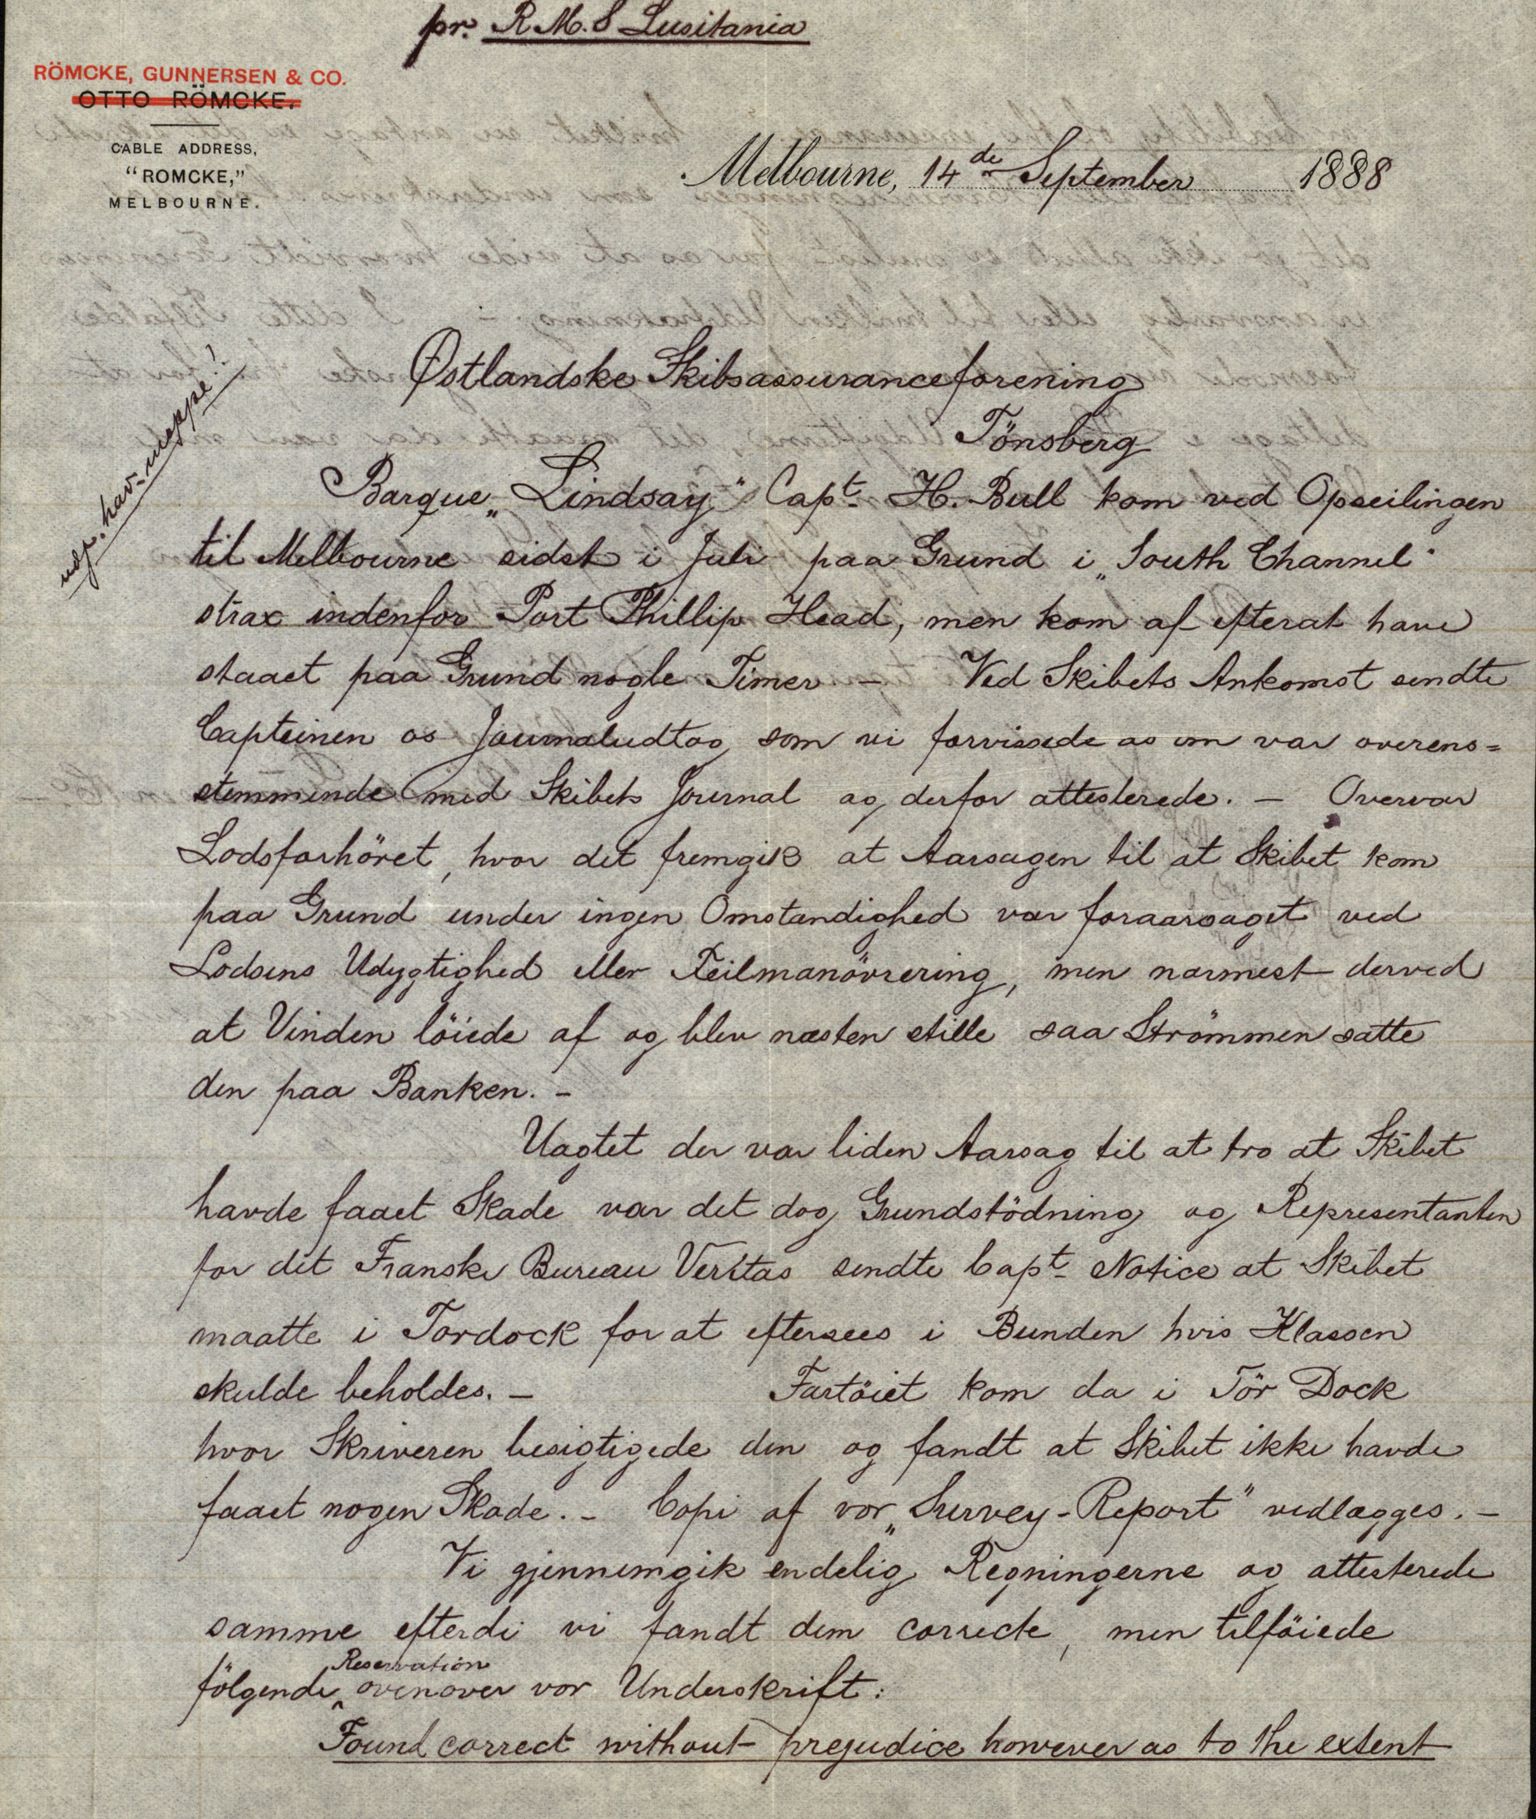 pr. R.M.S Lusitania
RÖMCKE, GUNNERSEN & CO.
OTTO RÖMCKE.
CABLE ADDRESS,
"ROMCKE,"
MELBOURNE.
Melbourne, 14de September 1888
Østlandske Skibsassuranceforening
Tönsberg
Barque „Lindsay" Capt. H. Bull kom ved Opseilingen
til Melbourne sidst i Juli paa Grund i „South Channel"
strax indenfor Port Phillip Head, men kom af efterat have
staaet paa Grund nogle Timer — Ved Skibets Ankomst sendte
Capteinen os Journaludtog som vi forvissede os om var overens=
stemmende med Skibets Journal og derfor attesterede. — Overvar
Lodsforhöret, hvor det fremgik at Aarsagen til at Skibet kom
paa Grund under ingen Omstandighed var foraarsaget ved
Lodsens Udygtighed eller Feilmanövrering, men narmest derved
at Vinden löiede af og blev næsten stille saa Strömmen satte
den paa Banken. —
Uagtet der var liden Aarsag til at tro at Skibet
havde faaet Skade var det dog Grundstödning og Representanten
for det Franske Bureau Veritas sendte Capt. Notice at Skibet
maatte i Tordock for at eftersees i Bunden hvis Klassen
skulde beholdes. — Fartöiet kom da i Tör Dock
hvor Skriveren besigtigede den og fandt at Skibet ikke havde
faaet nogen Skade. — Copi af vor „Survey-Report" vedlægges. —
Vi gjennemgik endelig Regningerne og attesterede
samme efterdi vi fandt dem correcte, men tilföiede
Reservation
fölgende ovenover vor Underskrift:
Found correct without prejudice however as to the extent